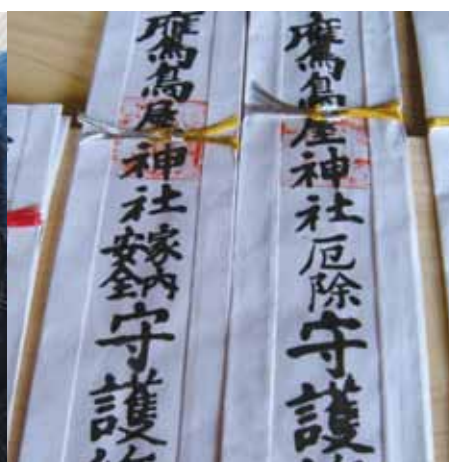 鷹鳥屋神社厄除守護
鷹鳥屋神社家内安全守護